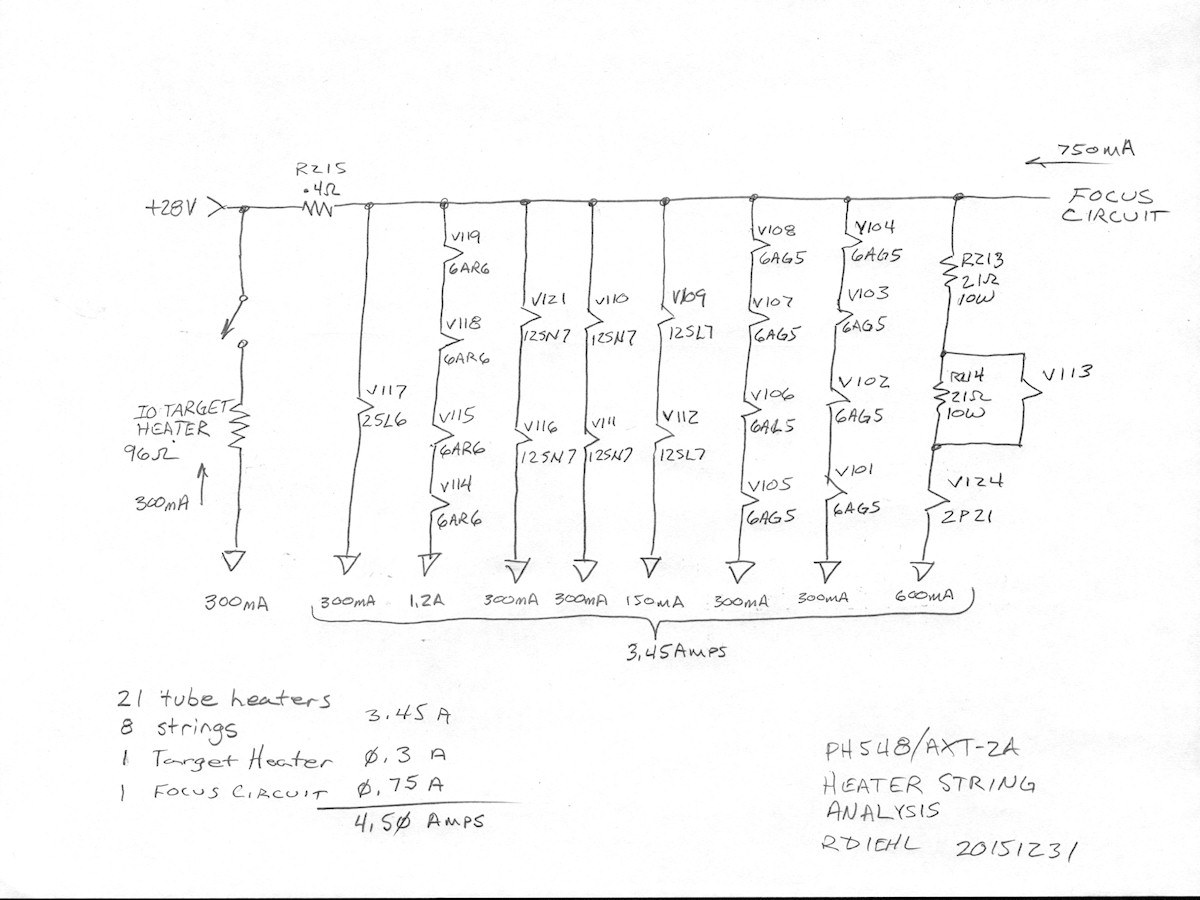 750mA
FOCUS
CIRCUIT
R215
.4Ω
+28V
V119
6AR6
V118
6AR6
V115
6AR6
V114
6AR6
V117
25L6
V121
12SN7
V116
12SN7
V110
12SN7
V111
12SN7
V109
12SL7
V112
12SL7
V108
6AG5
V107
6AG5
V106
6AL5
V105
6AG5
V104
6AG5
V103
6AG5
V102
6AG5
V101
6AG5
R213
21Ω
10W
R214
21Ω
10W
V113
V124
2P21
IO TARGET
HEATER
96Ω
300mA
300mA
300mA
1.2A
300mA
300mA
150mA
300mA
300mA
600mA
3.45 AMPS
21 tube heaters
8 strings
3.45 A
1 Target Heater 0.3 A
1 FOCUS CIRCUIT 0.75 A
4.50 AMPS
PH548/AXT-2A
HEATER STRING
ANALYSIS
RDIEHL 20151231